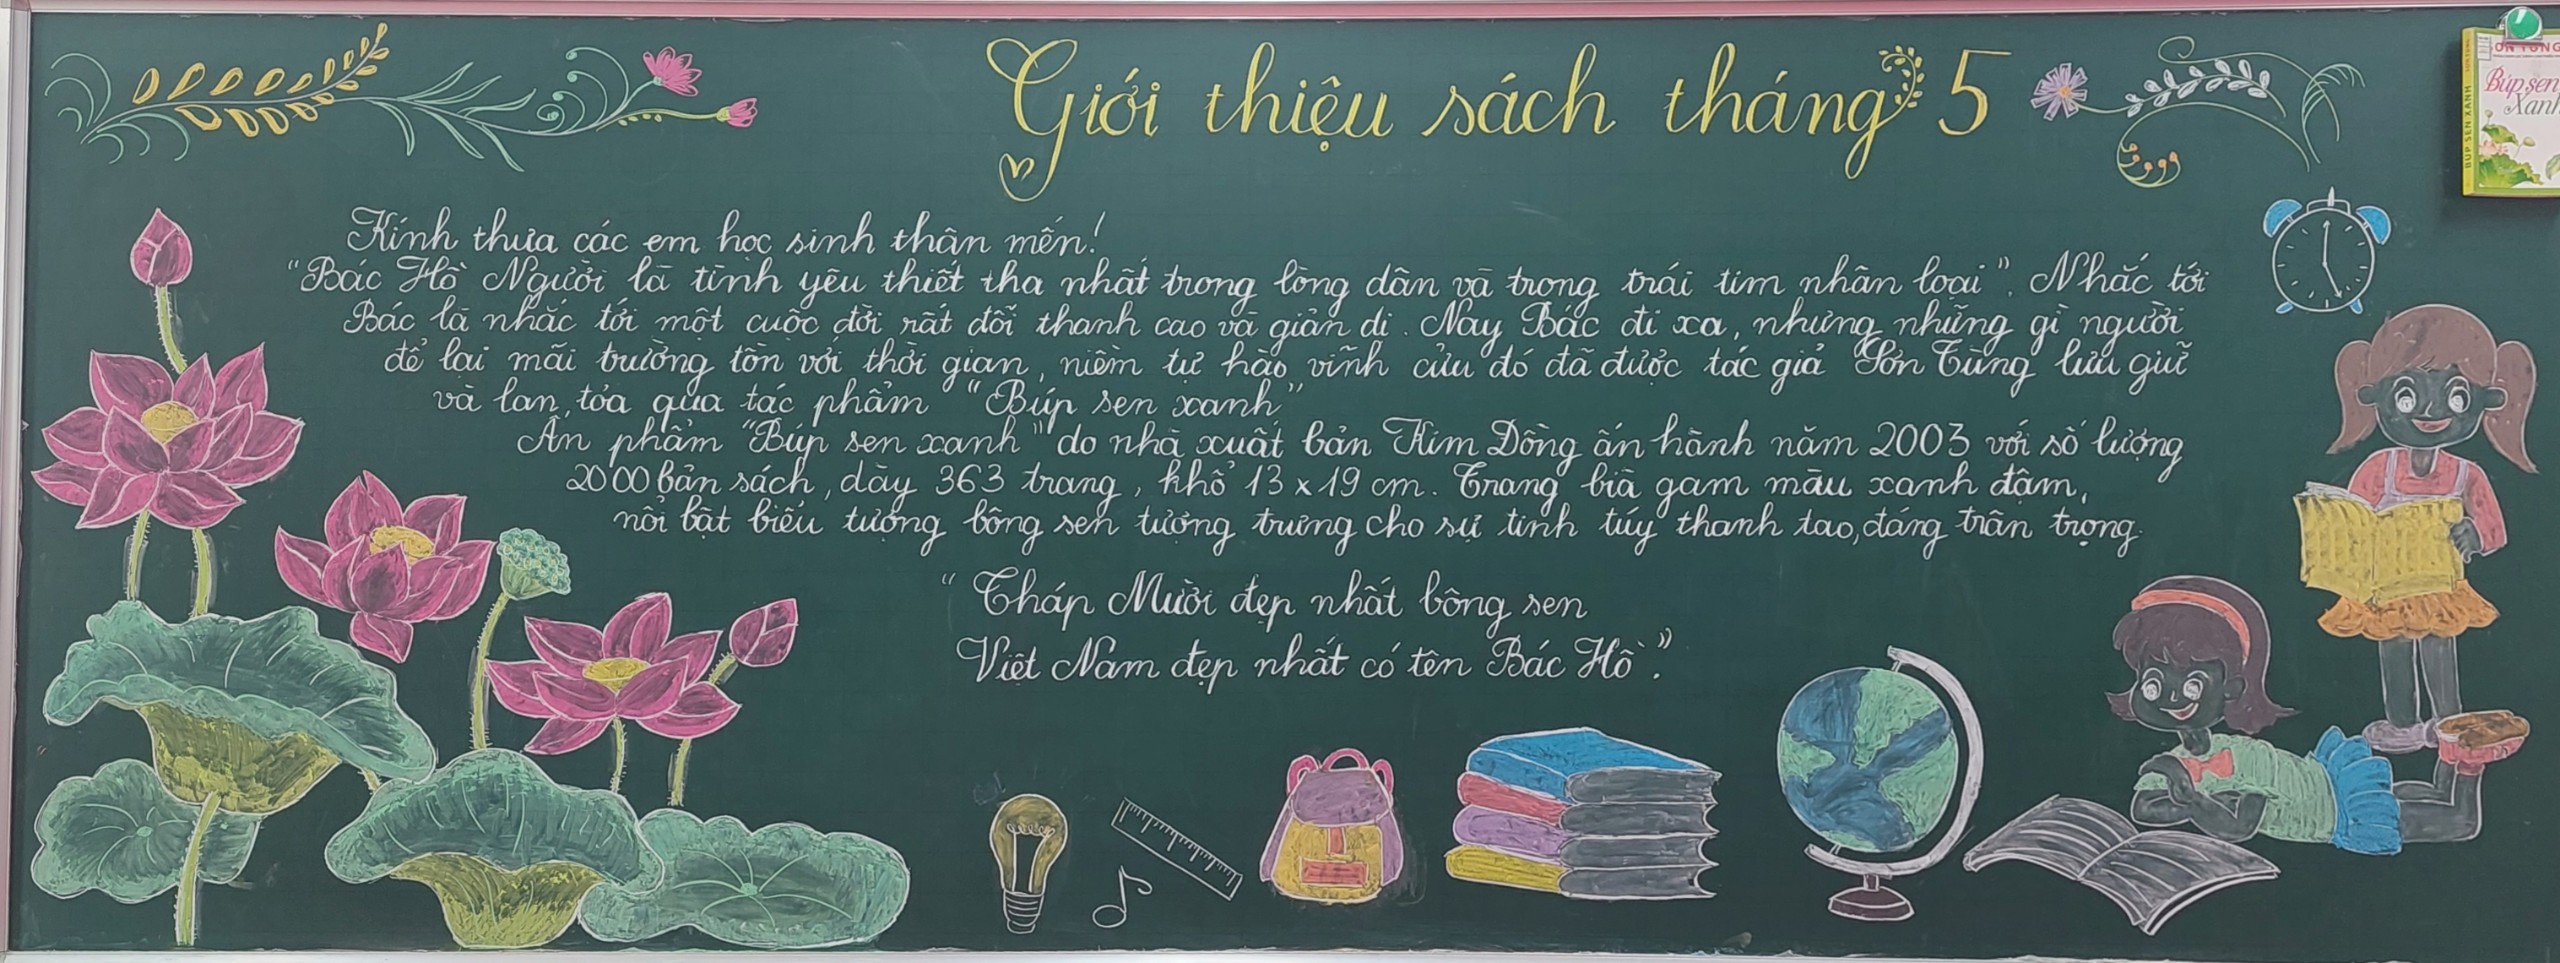 Giới thiệu sách tháng 5
Kính thưa các em học sinh thân mến!
"Bác Hồ Người là tình yêu thiết tha nhất trong lòng dân và trong trái tim nhân loại". Nhắc tới
Bác là nhắc tới một cuộc đời rất đỗi thanh cao và giản dị. Nay Bác đi xa, nhưng những gì người
để lại mãi trường tồn với thời gian, niềm tự hào vĩnh cửu đó đã được tác giả Sơn Tùng lưu giữ
và lan tỏa qua tác phẩm "Búp sen xanh"
Ấn phẩm "Búp sen xanh" do nhà xuất bản Kim Đồng ấn hành năm 2003 với số lượng
2000 bản sách, dày 363 trang, khổ 13 x 19 cm. Trang bìa gam màu xanh đậm,
nổi bật biểu tượng bông sen tượng trưng cho sự tinh túy thanh tao, đáng trân trọng.
"Tháp Mười đẹp nhất bông sen
Việt Nam đẹp nhất có tên Bác Hồ".
SƠN TÙNG
Búp sen
Xanh
BÚP SEN XANH